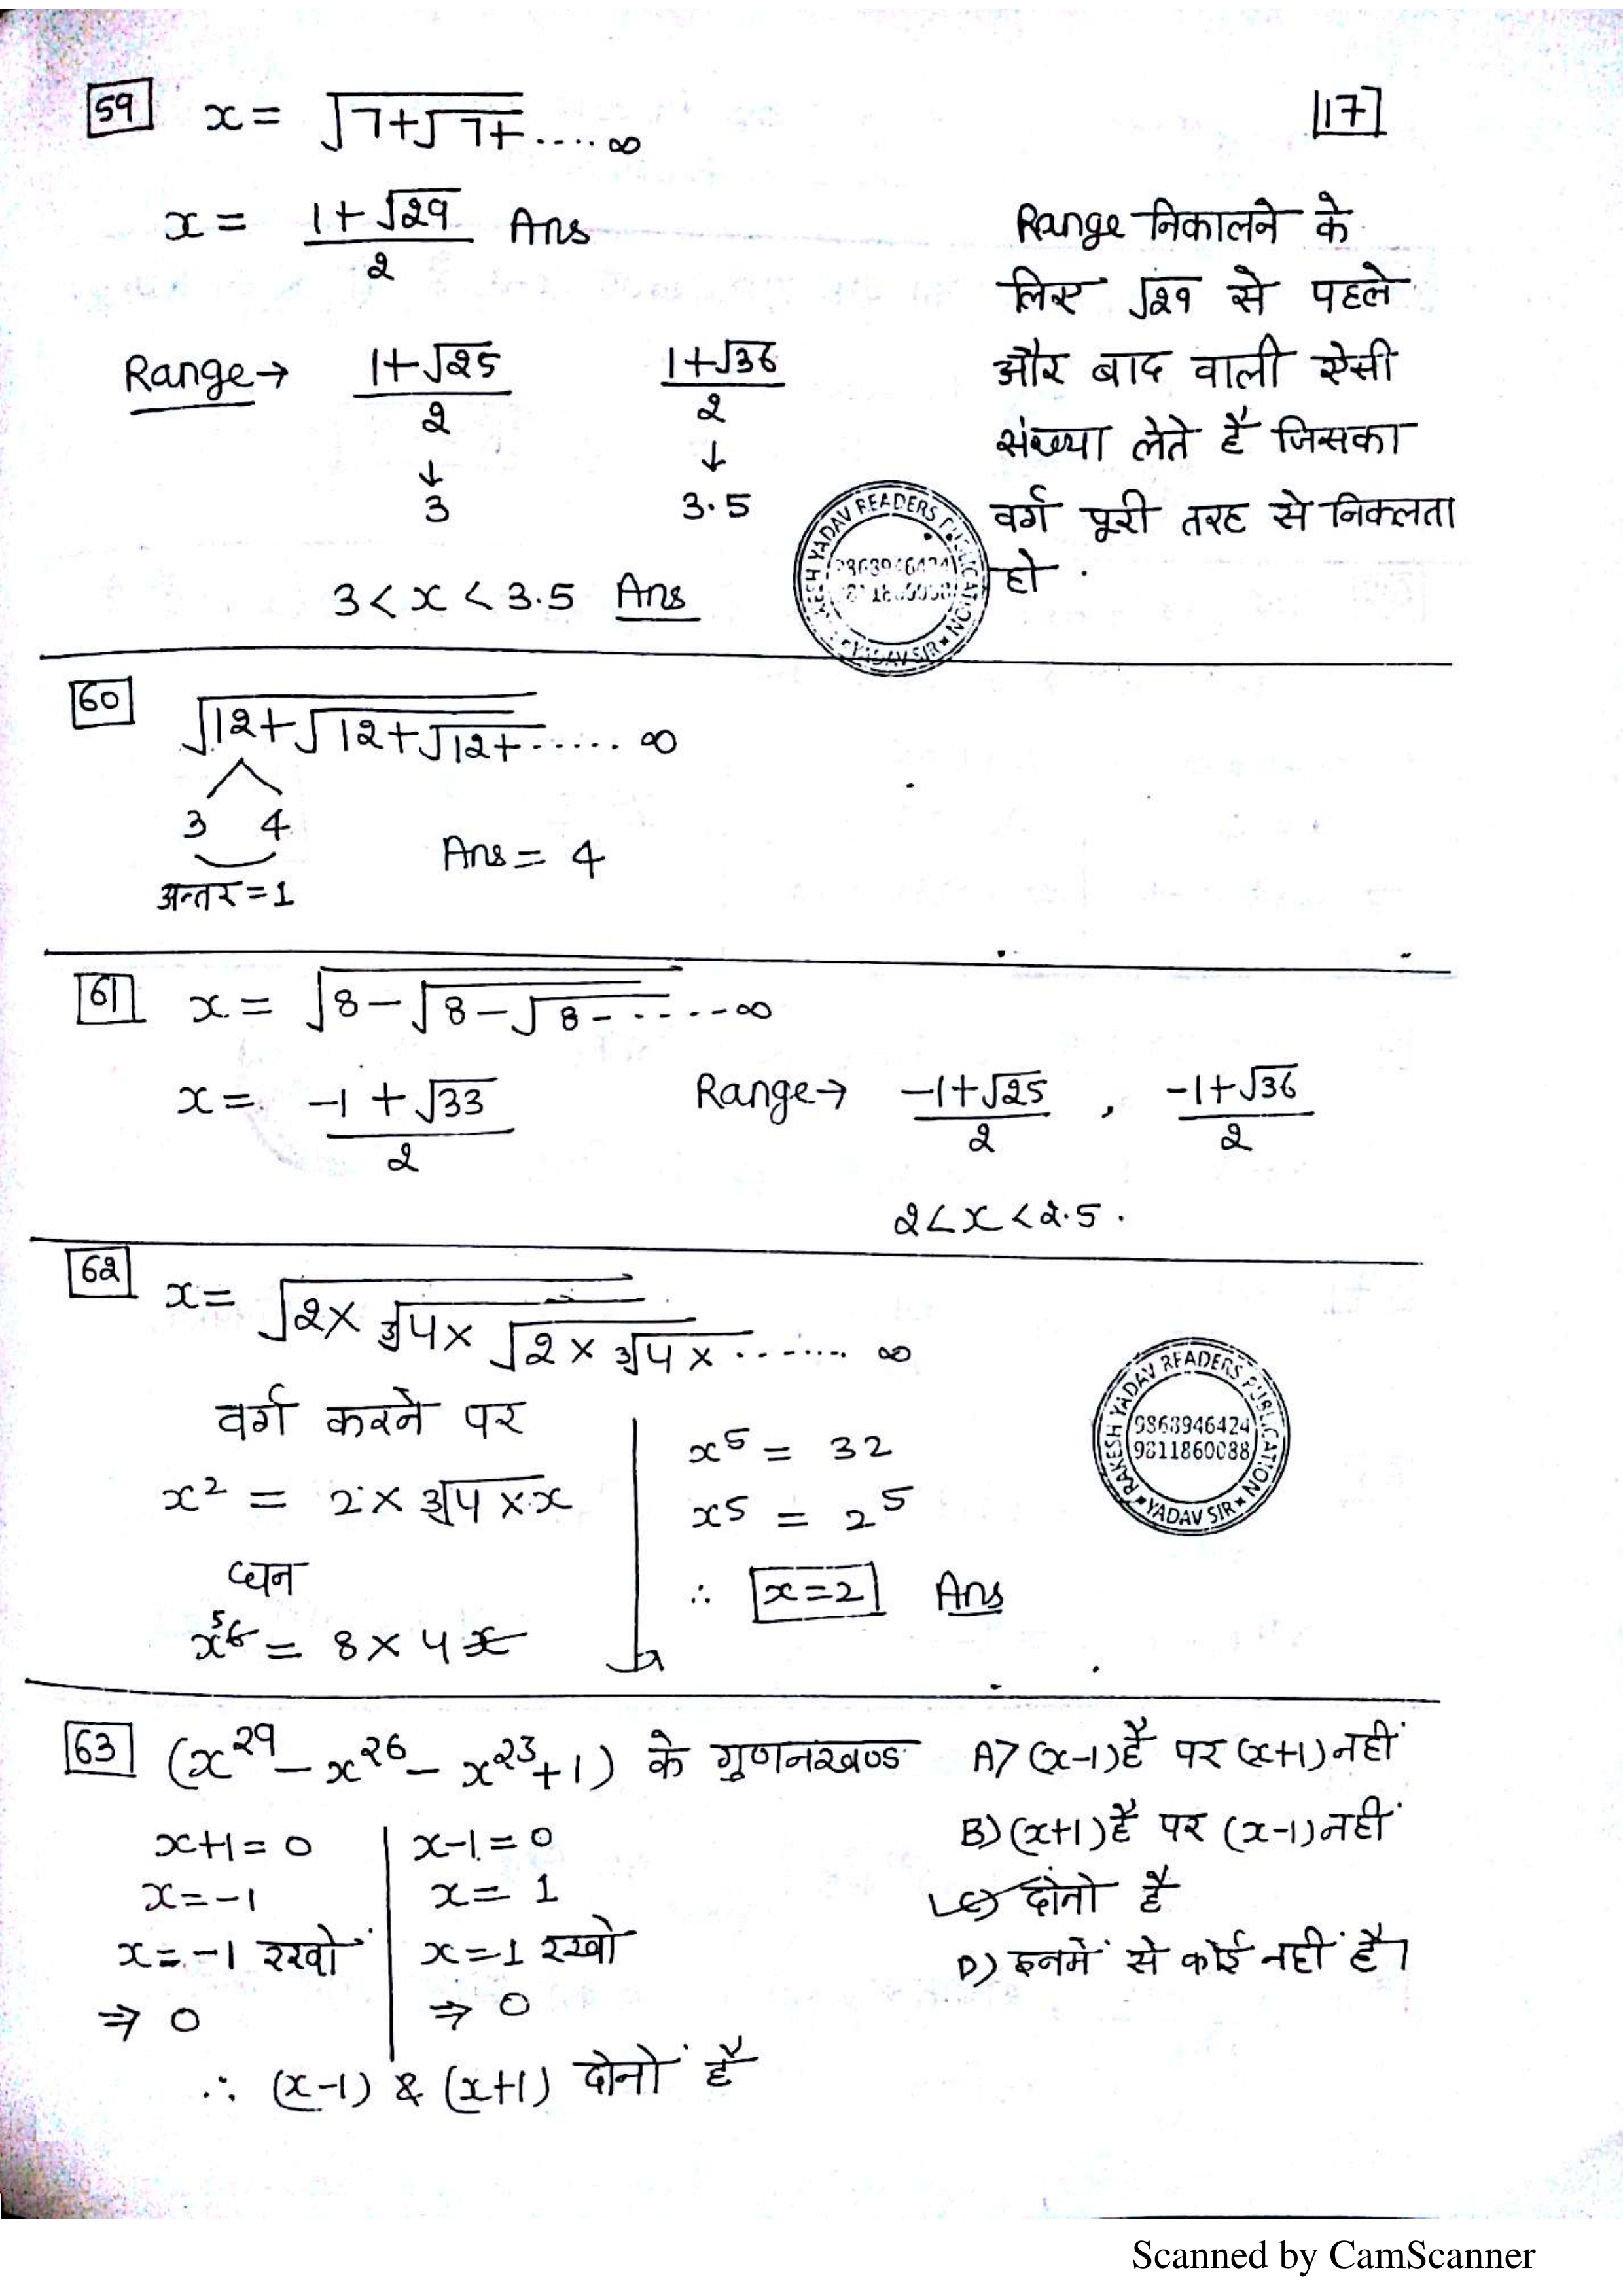 59 x = √7+√7+.....∞
17
x = (1+√29)/2 Ans
Range निकालने के
लिए √29 से पहले
और बाद वाली ऐसी
संख्या लेते है जिसका
वर्ग पूरी तरह से निकलता
हो .
Range→ (1+√25)/2 (1+√36)/2
↓ ↓
3 3.5
3 < x < 3.5 Ans
60 √12+√12+√12+...... ∞
3 4
अन्तर = 1
Ans = 4
61 x = √8-√8-√8-.....-∞
x = (-1+√33)/2 Range→ (-1+√25)/2 , (-1+√36)/2
2 < x < 2.5 .
62 x = √2× ∛4× √2× ∛4×....... ∞
वर्ग करने पर
x² = 2 × ∛4×x
घन
x⁶ 5 = 8 × 4x
x⁵ = 32
x⁵ = 2⁵
∴ x=2 Ans
RAKESH YADAV READERS PUBLICATION
9868946424
9811860088
YADAV SIR
63 (x²⁹ - x²⁶ - x²³ + 1) के गुणनखण्ड
A) (x-1) है पर (x+1) नहीं
B) (x+1) है पर (x-1) नहीं
C) दोनो है
D) इनमें से कोई नहीं है।
x+1 = 0 x-1 = 0
x = -1 x = 1
x = -1 रखो x = 1 रखो
⇒ 0 ⇒ 0
∴ (x-1) & (x+1) दोनों है
Scanned by CamScanner